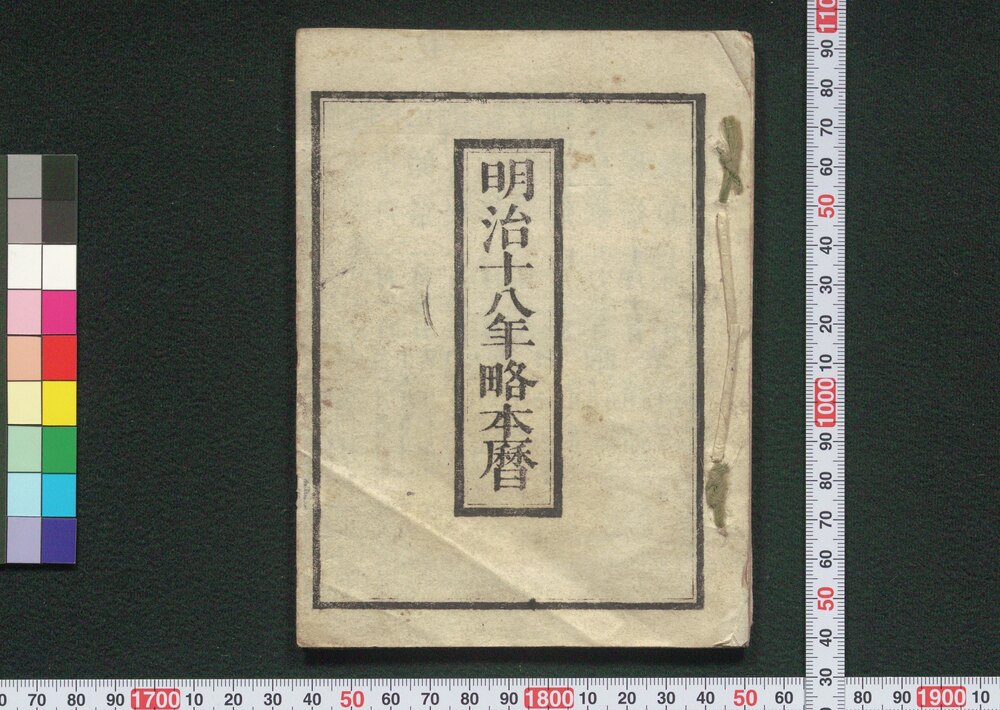 明治十八年略本暦
110
90
80
70
60
50
40
30
20
10
1000
90
80
70
60
50
40
30
0 70 80 90 1700 10 20 30 40 50 60 70 80 90 1800 10 20 30 40 50 60 80 90 1900 10